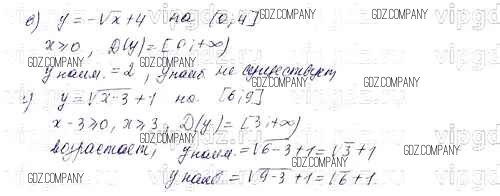 в) y = -√x + 4 на (0; 4]
x ≥ 0, D(y) = [0; +∞)
y наим. = 2, y наиб. не существует
г) y = √x-3 + 1 на [6; 9]
x - 3 ≥ 0, x ≥ 3, D(y) = [3; +∞)
возрастает, y наим. = √6-3 + 1 = √3 + 1
y наиб = √9-3 + 1 = √6 + 1.
GDZ.COMPANY
GDZ.COMPANY
GDZ.COMPANY
GDZ.COMPANY
GDZ.COMPANY
GDZ.COMPANY
GDZ.COMPANY
GDZ.COMPANY
GDZ.COMPANY
GDZ.COMPANY